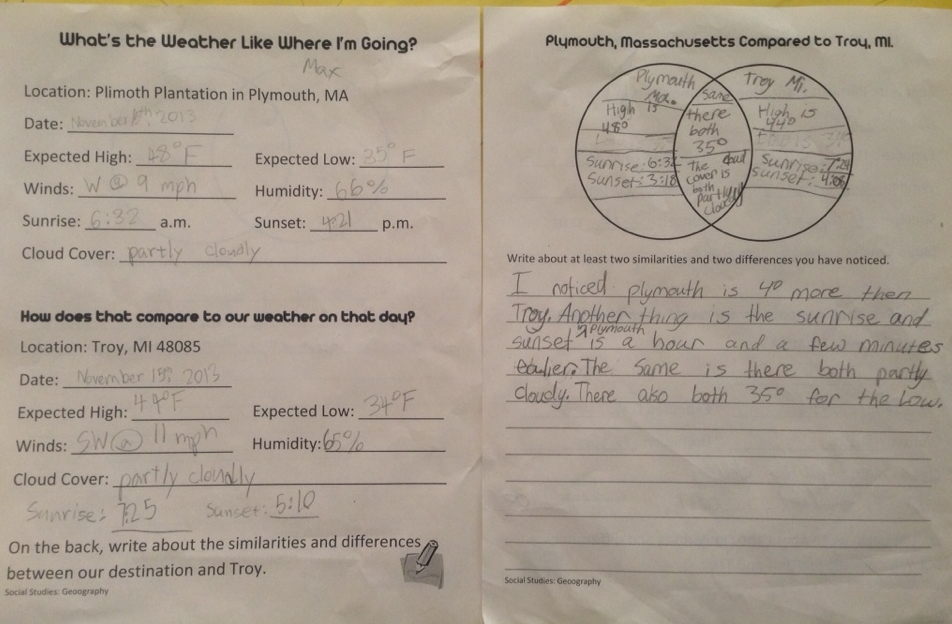 What's the Weather Like Where I'm Going?
Max
Location: Plimoth Plantation in Plymouth, MA
Date: November 2013
Expected High: 48°F Expected Low: 35° F
Winds: W @ 9 mph Humidity: 66%
Sunrise: 6:32 a.m. Sunset: 4:21 p.m.
Cloud Cover: partly cloudly
How does that compare to our weather on that day?
Location: Troy, MI 48085
Date: November 2013
Expected High: 44°F Expected Low: 34°F
Winds: SW @ 11 mph Humidity: 65%
Cloud Cover: partly cloudly
Sunrise: 7:25 Sunset: 5:10
On the back, write about the similarities and differences
between our destination and Troy.
Social Studies: Geography
Plymouth, Massachusetts Compared to Troy, MI.
Plymouth
Ma.
High is
48°
Sunrise: 6:32
Sunset: 3:18
Same
there
both
35°
The
cover is
both
partly
cloudy
Troy Mi.
High is
44°
Sunrise:
Sunset:
Write about at least two similarities and two differences you have noticed.
I noticed plymouth is 4° more then
Troy. Another thing is the sunrise and
sunset Plymouth is a hour and a few minutes
The same is there both partly
cloudy. There also both 35° for the low.
Social Studies: Geoography